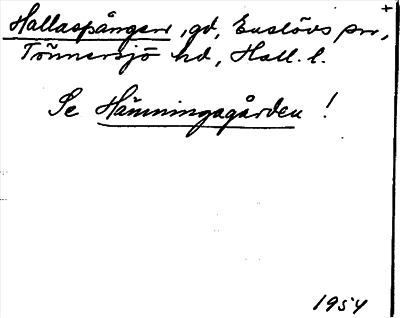 Hallaspången, gd, Enslövs sn,
Tönnersjö hd, Hall. l.
Se Hämningsgården !
1954